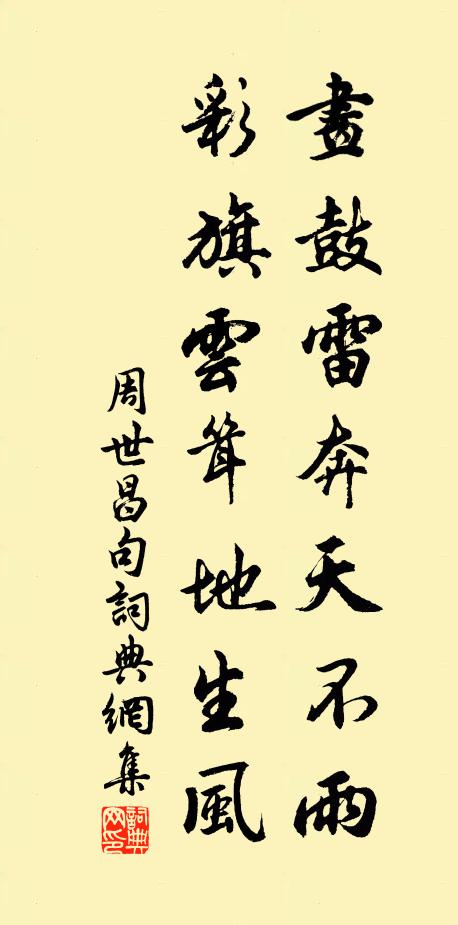 畫鼓雷奔天不雨
彩旗雲耸地生風
周世昌句詞典網集
詞典网印